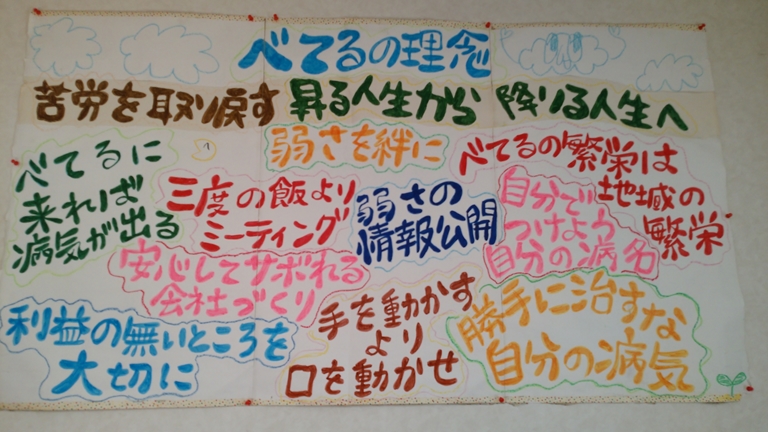 べてるの理念
苦労を取り戻す 昇る人生から 降りる人生へ
弱さを絆に
べてるに
来れば
病気が出る
三度の飯より
ミーティング
弱さの
情報公開
べてるの繁栄は
地域の
繁栄
自分で
つけよう
自分の病名
安心してサボれる
会社づくり
利益の無いところを
大切に
手を動かす
より
口を動かせ
勝手に治すな
自分の病気